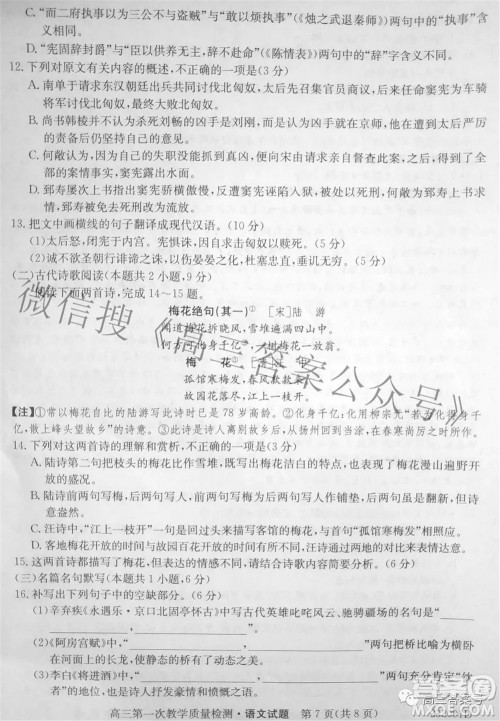 C.“而二府执事以为三公不与盗贼”与“敢以烦执事”(《烛之武退秦师》)两句中的“执事”含
义相同。
D.“宪固辞封爵”与“臣以供养无主,辞不赴命”(《陈情表》)两句中的“辞”字含义不同。
12.下列对原文有关内容的概述,不正确的一项是(3分)
A.南单于请求东汉朝廷出兵共同讨伐北匈奴,太后先召集官员商议,后来命窦宪为车骑
将军讨伐北匈奴,最终大败北匈奴。
B.尚书韩棱并不认为杀死刘畅的凶手是刘刚,而是认为凶手就在京师,他在遭到太后的
责备后仍坚持己见。
C.何敞认为,因为自己的失职没能抓到凶手,因而向宋由请求亲自督查此案,之后得到了全
部的案情事实,窦宪罪行也大白于天下。
D.郅寿屡次指出窦宪骄横傲慢,反遭窦宪诬陷入狱,被处以死刑,何敞为郅寿上书辩解,
郅寿被免去死刑改为流放。
13.把文中画横线的句子翻译成现代汉语。(10分)
(1)太后怒,闭宪于内宫。宪惧诛,因自求击匈奴以赎死。
(2)诚不欲圣朝行诽谤之诛,以伤晏晏之化,杜塞忠直,垂讥无穷。
(二)古代诗歌阅读(本题共2小题,9分)
阅读下面两首诗,完成14～15题。
梅花绝句(其一)① [宋]陆 游
闻道梅花坼晓风,雪堆遍满四山中。
何方可化身千亿②,一树梅花一放翁。
梅 花
孤馆寒梅发,春风款款
故园花落尽,江上一枝开。
【注】①常以梅花自比的陆游写此诗时已是78岁高龄。②化身千亿:化用柳宗元“若为化得身千
亿,散上峰头望故乡”的诗意。③此诗是诗人离别故乡后,从扬州回到当涂,在春寒尚厉之时所作。
14.下列对这两首诗的理解和赏析,不正确的一项是(3分)
A.陆诗第二句把枝头的梅花比作雪堆,既写出了梅花洁白的特点,也表现了梅花漫山遍野开
放的盛况。
B.陆诗前两句写梅,后两句写人,前两句为后两句写人作铺垫,后两句虽是翻新,但诗意
自然无斧凿痕迹。
C.汪诗中,“江上一枝开”一句是回过头来描写客馆的梅花,与首句“孤馆寒梅发”相呼应。
D.客地梅花开与故园梅花落形成鲜明对比,突出了诗人对江上寒梅的喜爱之情。
15.这两首诗都描写了梅花,但表达的情感不同,请结合诗歌内容简要分析。(6分)
(三)名篇名句默写(本题共1小题,6分)
16.补写出下列句子中的空缺部分。(6分)
(1)辛弃疾《永遇乐·京口北固亭怀古》中写古代英雄叱咤风云、驰骋疆场的名句是“
”。
(2)《阿房宫赋》中,“ , ”两句把桥比喻为横卧
在河面上的长龙,使静态的桥有了动态美。
(3)李白《将进酒》中,“ , ”两句诗通过
高三第一次教学质量检测·语文试题 第7页(共8页)
微信搜《高三答案公众号》
高三答案